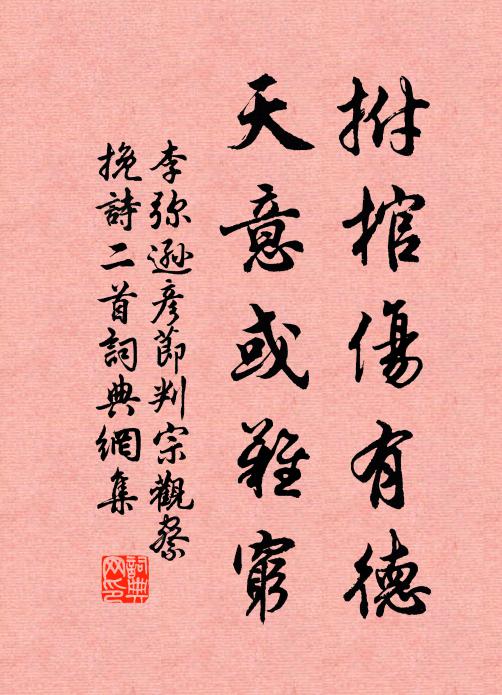 拊棺傷有德
天意或難窮
李弥遜彦節判宗觀察
挽詩二首詞典網集
詞典
网印